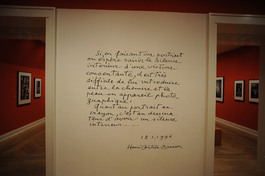 Si, en faisant un portrait
on espère saisir le silence
intérieur d'une victime
consentante, il est très
difficile de lui introduire
entre la chemise et la
peau un appareil photo
graphique.
Quant au portrait au
crayon, c'est au dessina
teur d'avoir un silence
intérieur
18.1.1996
Henri Cartier-Bresson